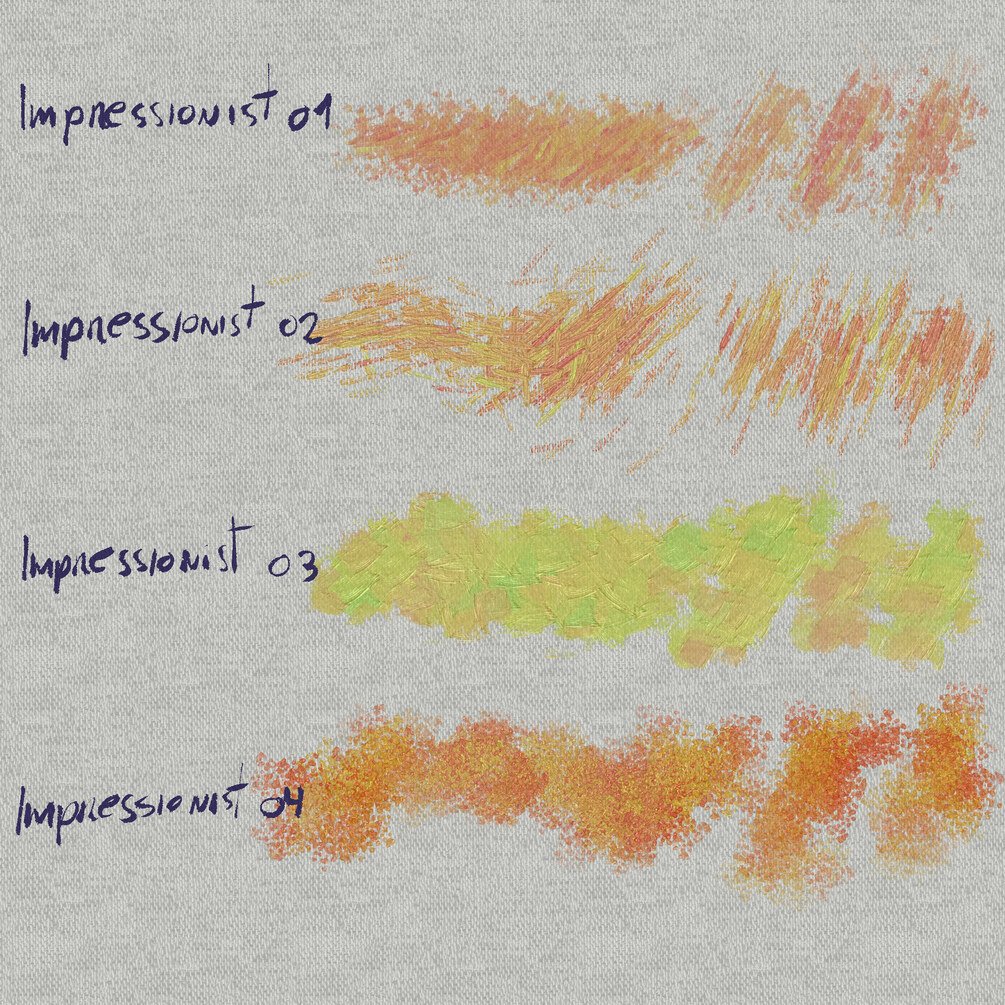 Impressionist 01
Impressionist 02
Impressionist 03
Impressionist 04